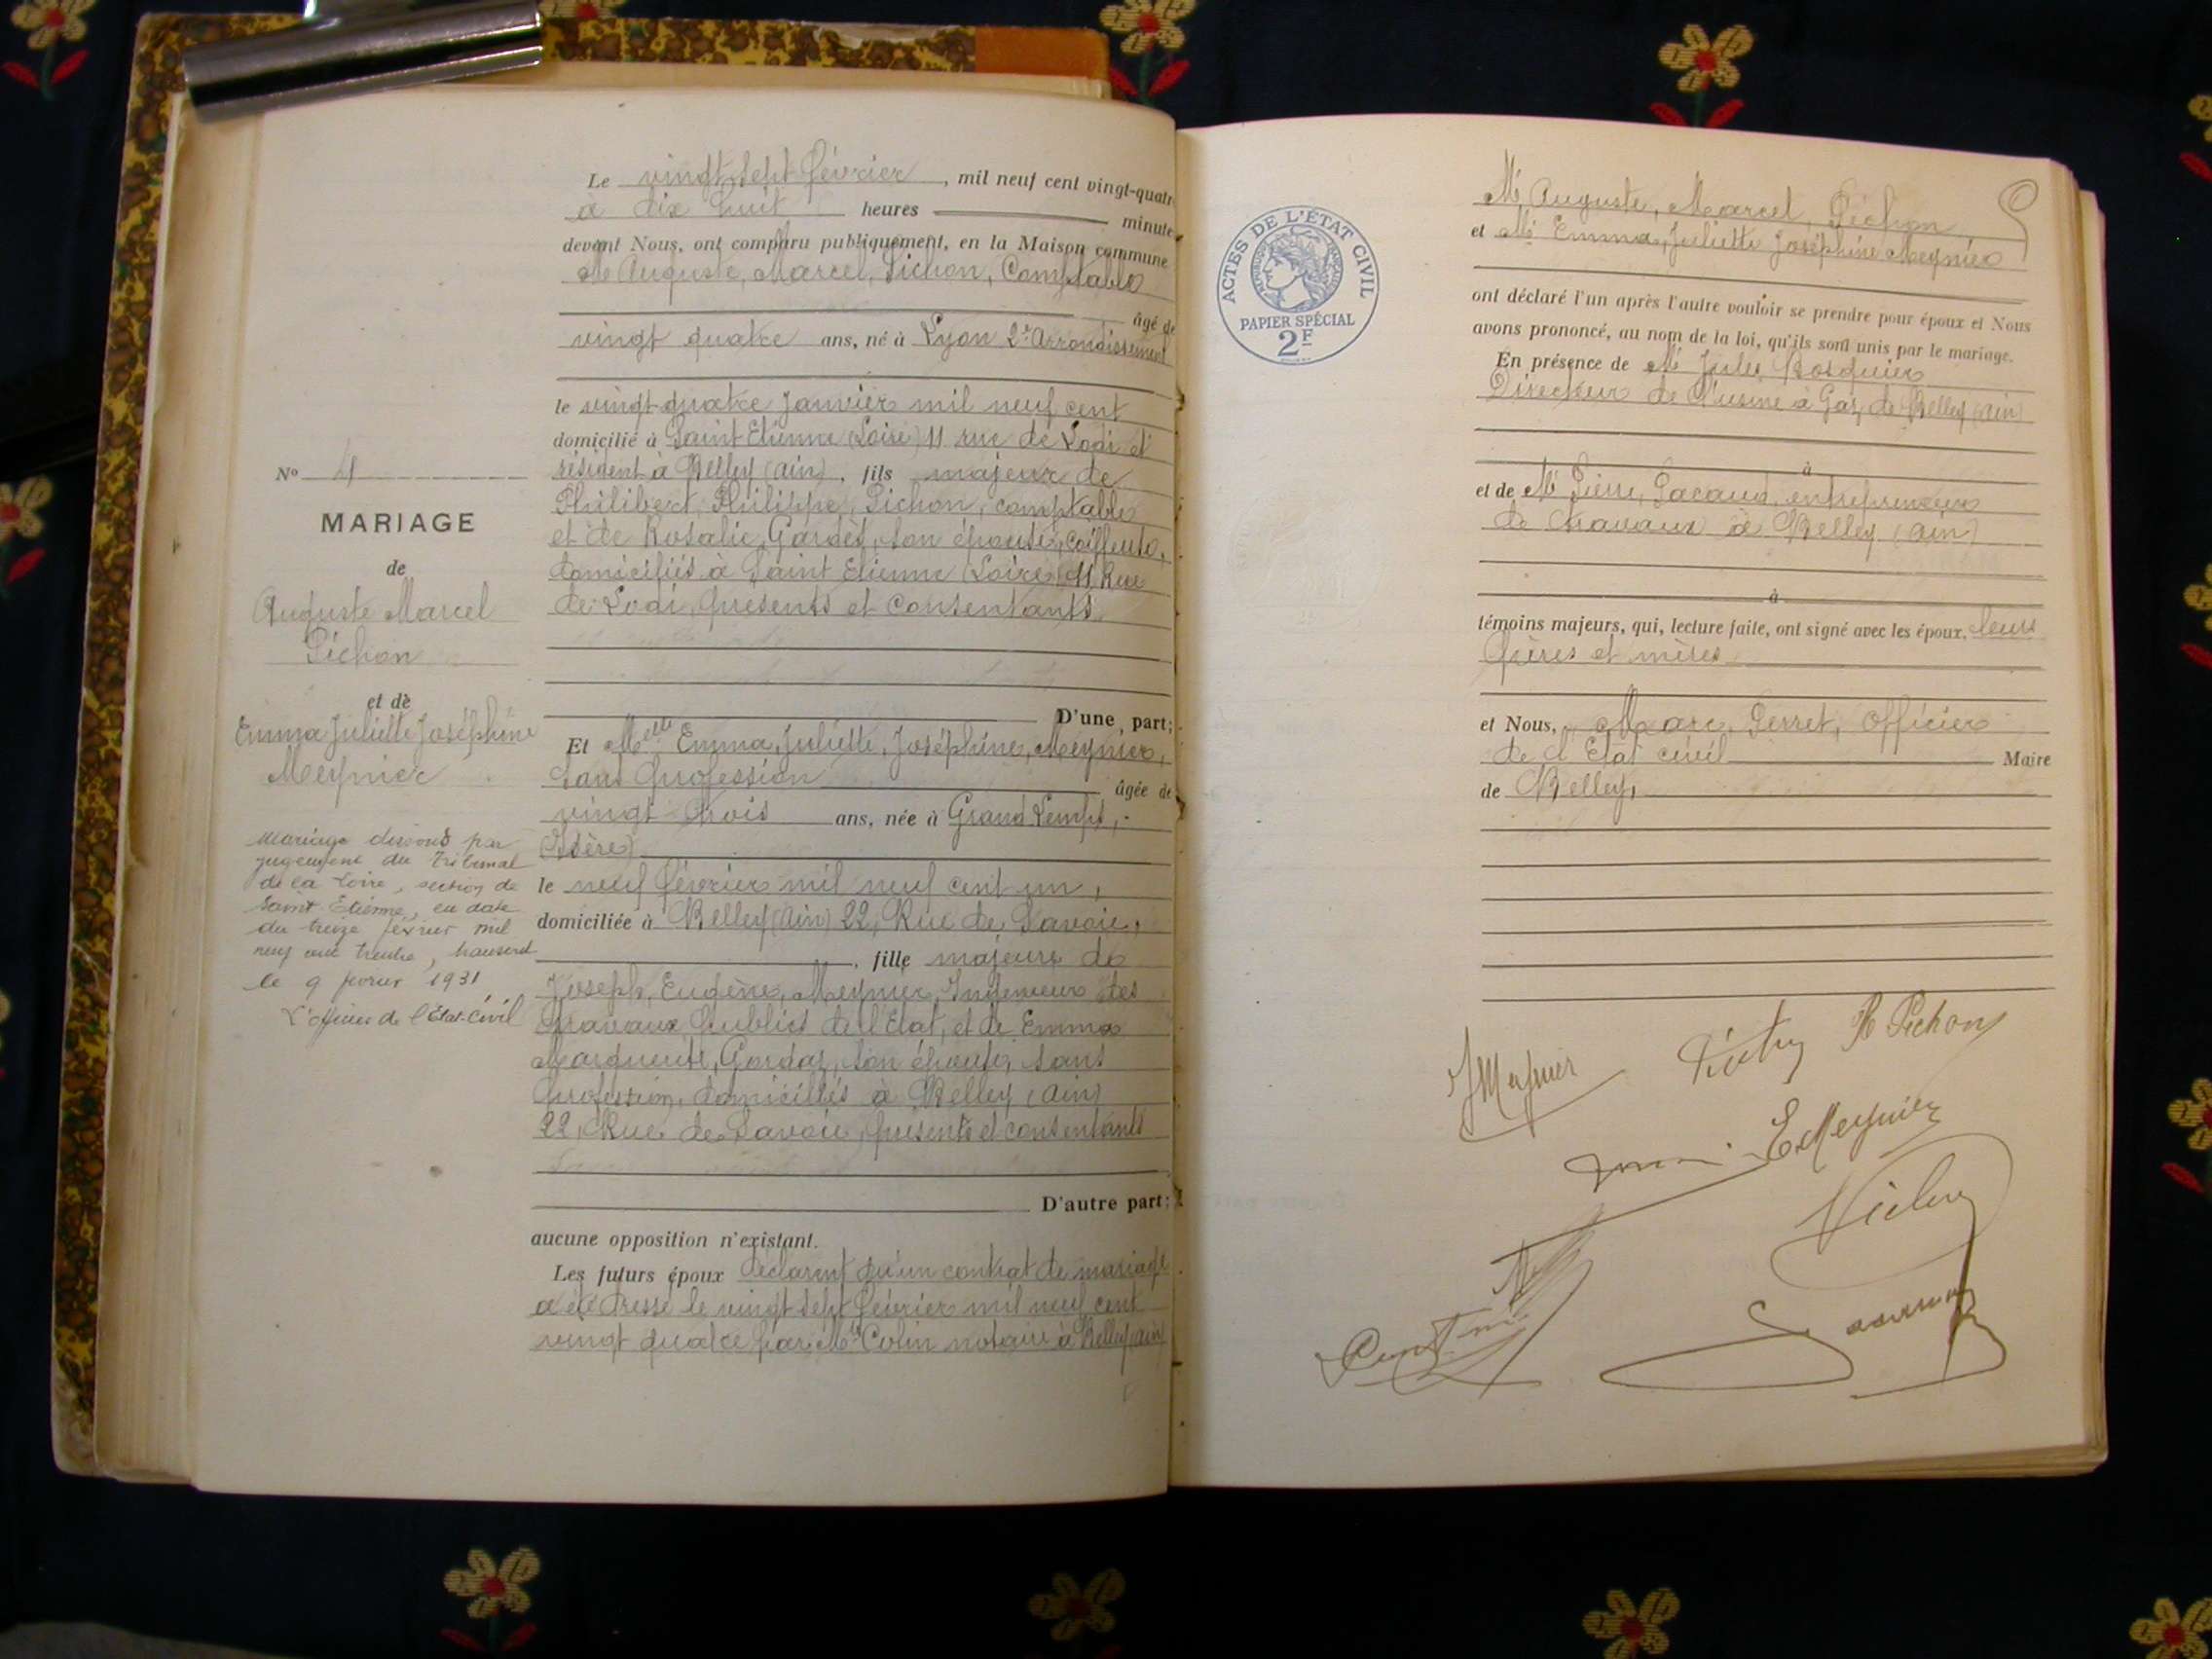 Le vingt sept février, mil neuf cent vingt-quatr
à dix huit heures minute
devant Nous, ont comparu publiquement, en la Maison commune
M Auguste, Marcel, Pichon, Comptable
âgé de
vingt quatre ans, né à Lyon 2e Arrondissement
le vingt-quatre Janvier mil neuf cent
domicilié à Saint Etienne (Loire) 11 rue de Lodi et
résident à Belley (Ain), fils majeur de
Philibert, Philippe, Pichon, comptable
et de Rosalie, Gardès, son épouse, coiffeuse,
domiciliés à Saint Etienne (Loire) 11 Rue
de Lodi, présents et consentants
D'une part;
Nº 4
MARIAGE
de
Auguste Marcel
Pichon
et de
Emma Juliette Joséphine
Meynier
Mariage dissous par
jugement du Tribunal
de la Loire, section de
Saint Etienne, en date
du treize février mil
neuf cent trente, transcrit
le 9 février 1931
L'officier de l'Etat-Civil
Et Melle Emma, Juliette, Joséphine, Meynier,
sans profession âgée de
vingt trois ans, née à Grand Lemps,
(Isère)
le neuf février mil neuf cent un,
domiciliée à Belley (Ain) 22, Rue de Savoie,
, fille majeure de
Joseph, Eugène, Meynier, Ingénieur des
travaux Publics de l'Etat, et de Emma
Marguerite, Gardaz, son épouse, sans
profession, domiciliés à Belley (Ain)
22, Rue de Savoie, présents et consentants
D'autre part;
aucune opposition n'existant.
Les futurs époux déclarent qu'un contrat de mariage
a été dressé le vingt sept février mil neuf cent
vingt quatre par Me Colin notaire à Belley (Ain)
ACTES DE L'ÉTAT CIVIL
PAPIER SPÉCIAL
2F
M Auguste, Marcel, Pichon
et Melle Emma, Juliette Joséphine Meynier
ont déclaré l'un après l'autre vouloir se prendre pour époux et Nous
avons prononcé, au nom de la loi, qu'ils sont unis par le mariage.
En présence de Mr Jules Bosquier
Directeur de l'usine à Gaz de Belley (Ain)
à
et de Mr Pierre, Pacaud, entrepreneur
de travaux à Belley (Ain)
à
témoins majeurs, qui, lecture faite, ont signé avec les époux, leurs
pères et mères
et Nous, Marc, Perret, Officier
de l'Etat civil Maire
de Belley,
JMeynier
Pichon
EMeynier